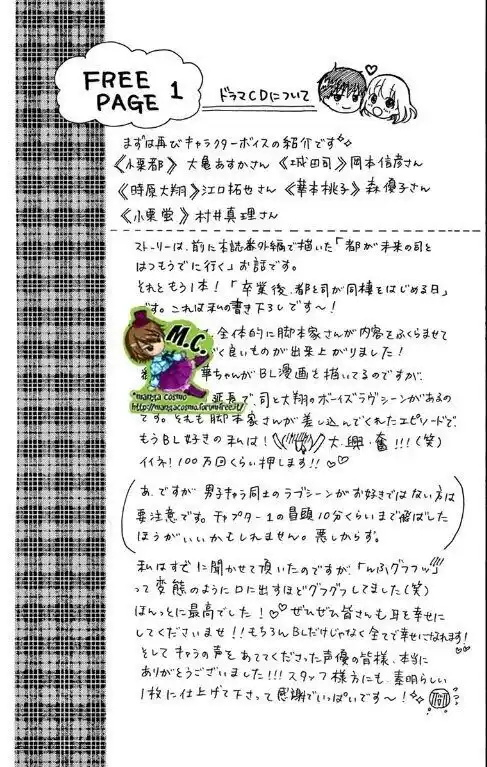 FREE PAGE 1
ドラマCDについて
まずは再びキャラクターボイスの紹介です
《小栗都》大亀あすかさん《城田司》岡本信彦さん
《時原大翔》江口拓也さん《華本桃子》森優子さん
《小栗蛍》村井真理さん
ストーリーは、前に本誌番外編で描いた「都が未来の司と
はつもうでに行く」お話です。
それともう1本!「卒業後、都と司が同棲をはじめる日」
です。これは私の書き下ろしです〜!
全体的に脚本家さんが内容をふくらませて
良いものが出来上がりました!
華ちゃんがBL漫画を描いてるのですが、
延長で、司と大翔のボーイズラヴシーンがあるの
です。それも脚本家さんが差し込んでくれたエピソードで、
もうBL好きの私は!大・興・奮!!!(笑)
イイネ!100万回くらい押します!!♡♡
あ、ですが男子キャラ同士のラブシーンがお好きではない方は
要注意です。チャプター1の冒頭10分くらいまで飛ばした
ほうがいいかもしれません。悪しからず。
私はすでに聞かせて頂いたのですが「んふグフフッ」
って変態のように口に出すほどグフグフしてました(笑)
ほんっとに最高でした!♡♡ぜひぜひ皆さんも耳を幸せに
してくださいませ!!もちろんBLだけじゃなく全てで幸せになれます!
そしてキャラの声をあててくださった声優の皆様、本当に
ありがとうございました!!!スタッフ様方にも、素晴らしい
1枚に仕上げて下さって感謝でいっぱいです〜!
M.C.
*manga cosmo*
http://mangacosmo.forumfree.it/